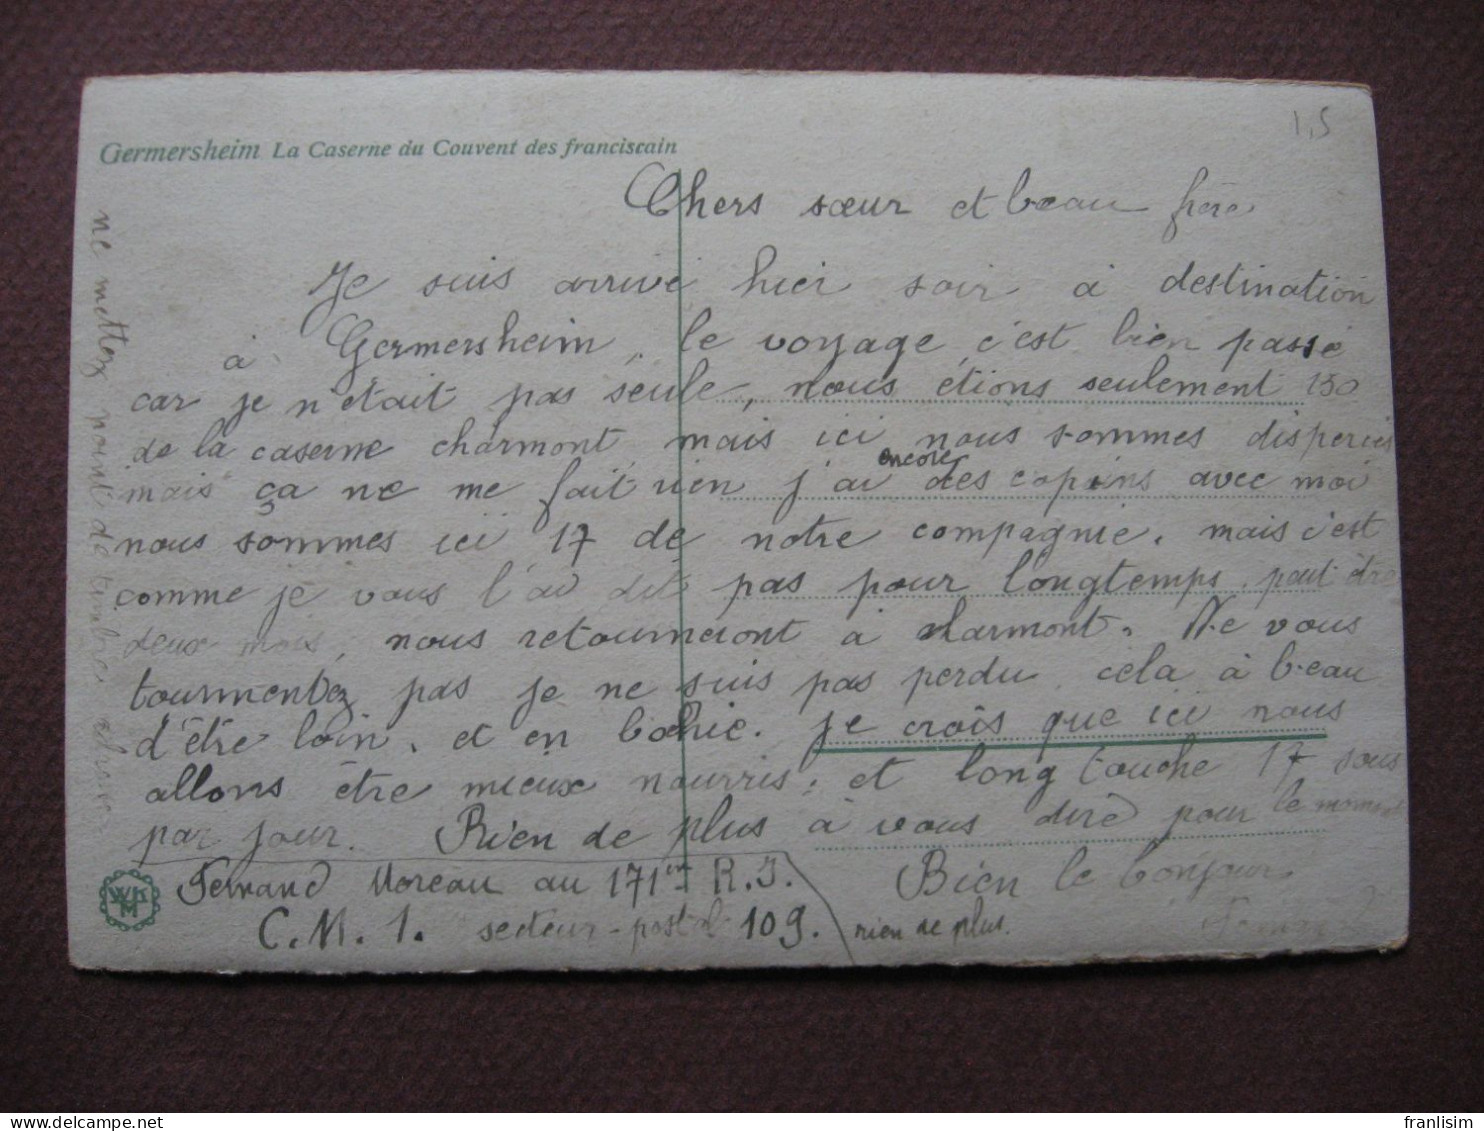 1,5
Germersheim La Caserne du Couvent des franciscain
Chers sœur et beau frère
Je suis arrivé hier soir à destination
à Germersheim, le voyage c'est bien passé
car je n'était pas seule, nous étions seulement 150
de la caserne charmont, mais ici nous sommes disperies
encore
mais ça ne me fait rien j'ai des copains avec moi
nous sommes ici 17 de notre compagnie. mais c'est
comme je vous l'ai dit pas pour longtemps, peut être
deux mois, nous retourneront à charmont. Ne vous
tourmentez pas je ne suis pas perdu, cela à beau
d'être loin, et en bochie. je crois que ici nous
allons être mieux nourris, et long touche 17 sous
par jour. Rien de plus à vous dire pour le moment
Bien le bonjour
Fernand Moreau au 171em R.I.
C.M.1. secteur-postal 109.
rien de plus.
ne mettez point de timbre
WKM
franlisim
delcampe.net